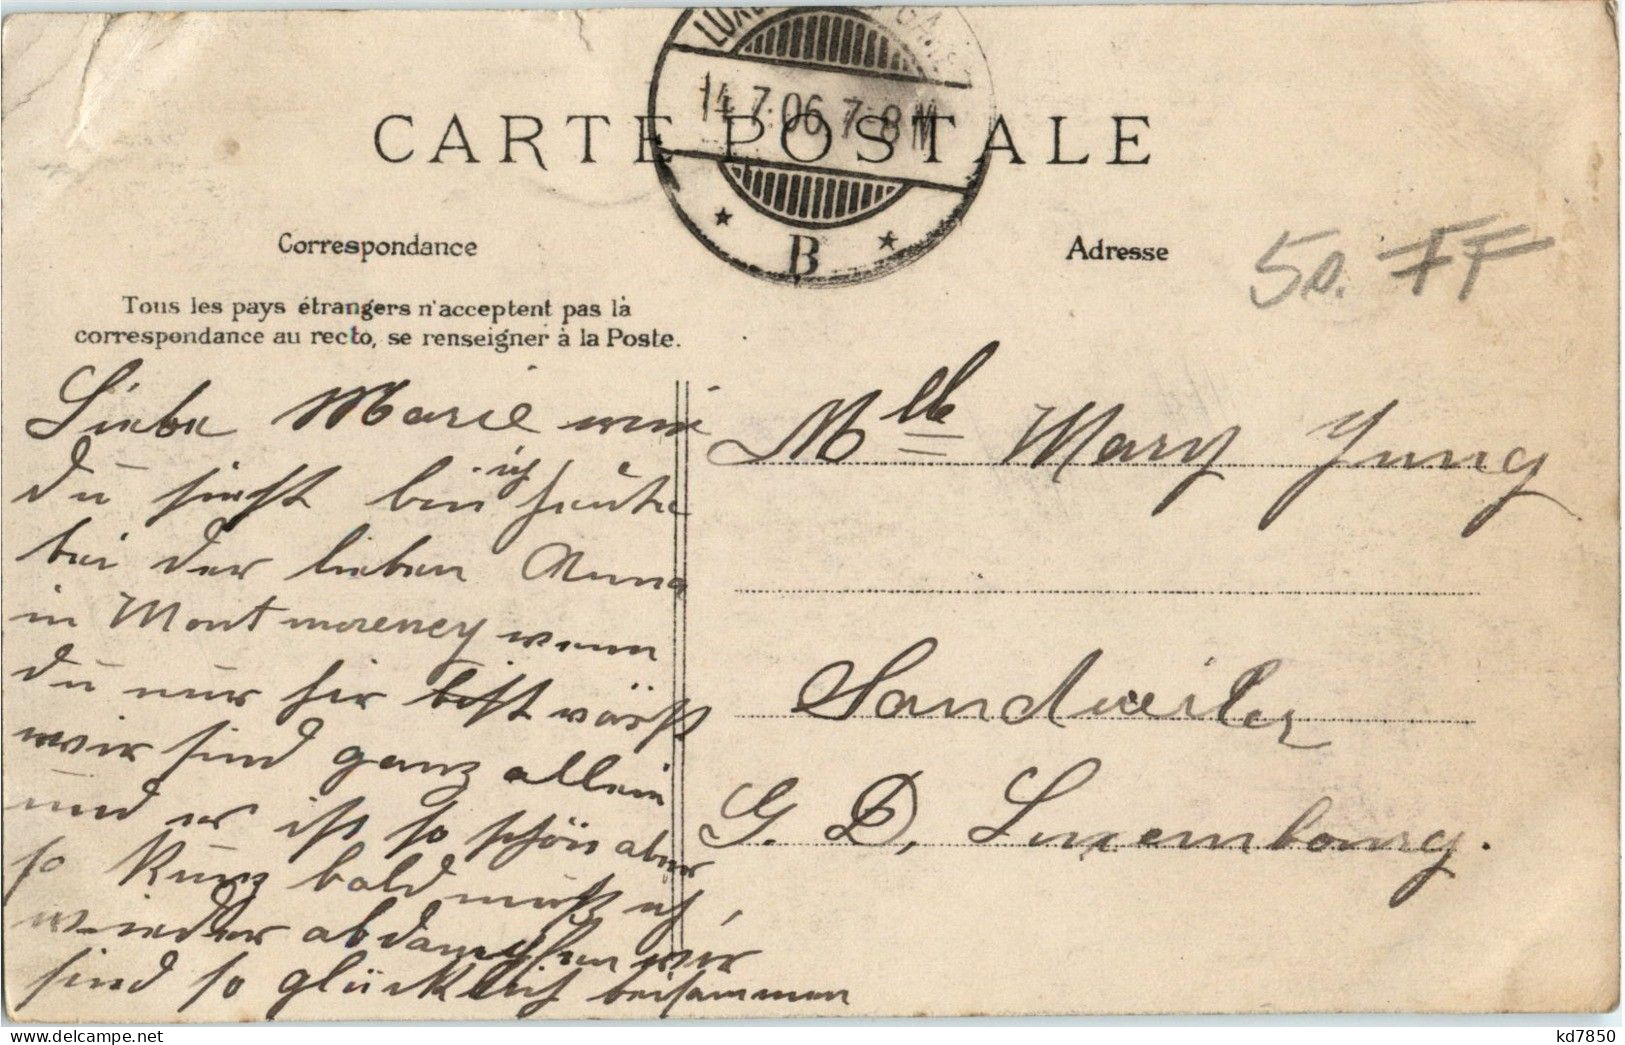 LUXEMBOURG GARE
14.7.06 7-8 M
CARTE POSTALE
* B *
Correspondance
Adresse
50. FF
Tous les pays étrangers n'acceptent pas la
correspondance au recto, se renseigner à la Poste.
Liebe Marie wie
du siehst bin ich heute
bei der lieben Anna
in Montmorency wenn
du nur hir bist wärst
wir sind ganz allein
und es ist so schön aber
so kurz bald muß ich
wieder abdampfen wir
sind so glücklich beisammen
Mlle Mary Jung
Sandweiler
G. D. Luxembourg.
kd7850